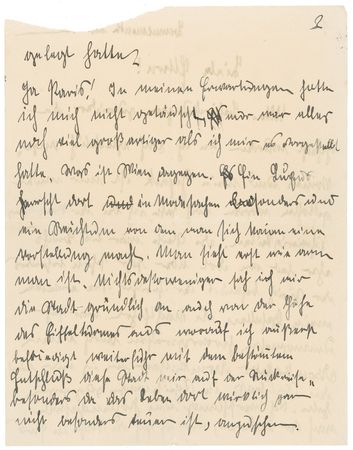 2
gelegt hatte?
Ja Paris! In meinen Erwartungen hatte
ich mich nicht getäuscht, nur war alles
noch viel großartiger als ich mir es vorgestellt
hatte. Was ist Wien dagegen. Ein Luxus
herrscht dort in Modesachen besonders und
ein Reichtum von dem man sich kaum eine
Vorstellung macht. Man sieht erst wie arm
man ist. Nichtsdestoweniger sah ich mir
die Stadt gründlich an auch von der Höhe
des Eiffelturmes aus worauf ich äußerst
befriedigt weiterfuhr mit dem bestimmten
Entschluß diese Stadt mir auf der Rückreise,
besonders da das Leben dort wirklich gar
nicht besonders teuer ist, anzusehen.